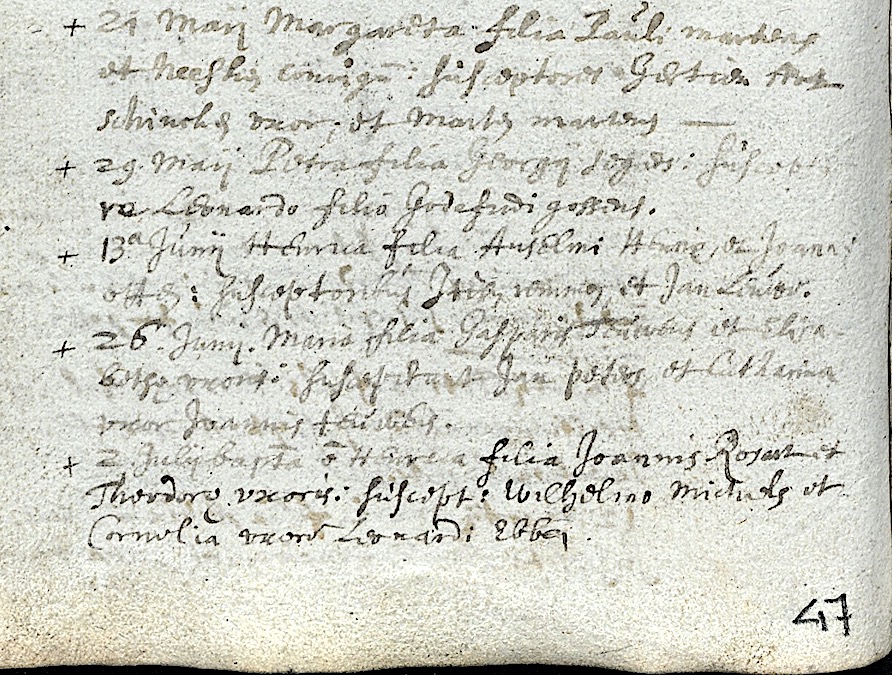 + 21 Maij Margareta filia Pauli martens
et neesken coniugũ: susceptores Gertien
schincken uxor, et Marten martens —
+ 29 Maij Petra filia Georgij segers: suscepto
re Leonardo filio Godefridi gossens.
+ 13ª Junij Henrica filia Anselmi et Joan
: susceptoribus Itien remmes et Jan
+ 26. Junij. Maria filia Gasparis et Elisa
bethę uxoris: susceperunt Jan peters et Catharina
uxor Joannis
+ 2 Julij bapta ẽ Henrica filia Joannis Rosart et
Theodorę uxoris: suscept: Wilhelmo Michels et
Cornelia uxore Leonardi Ebben.
47